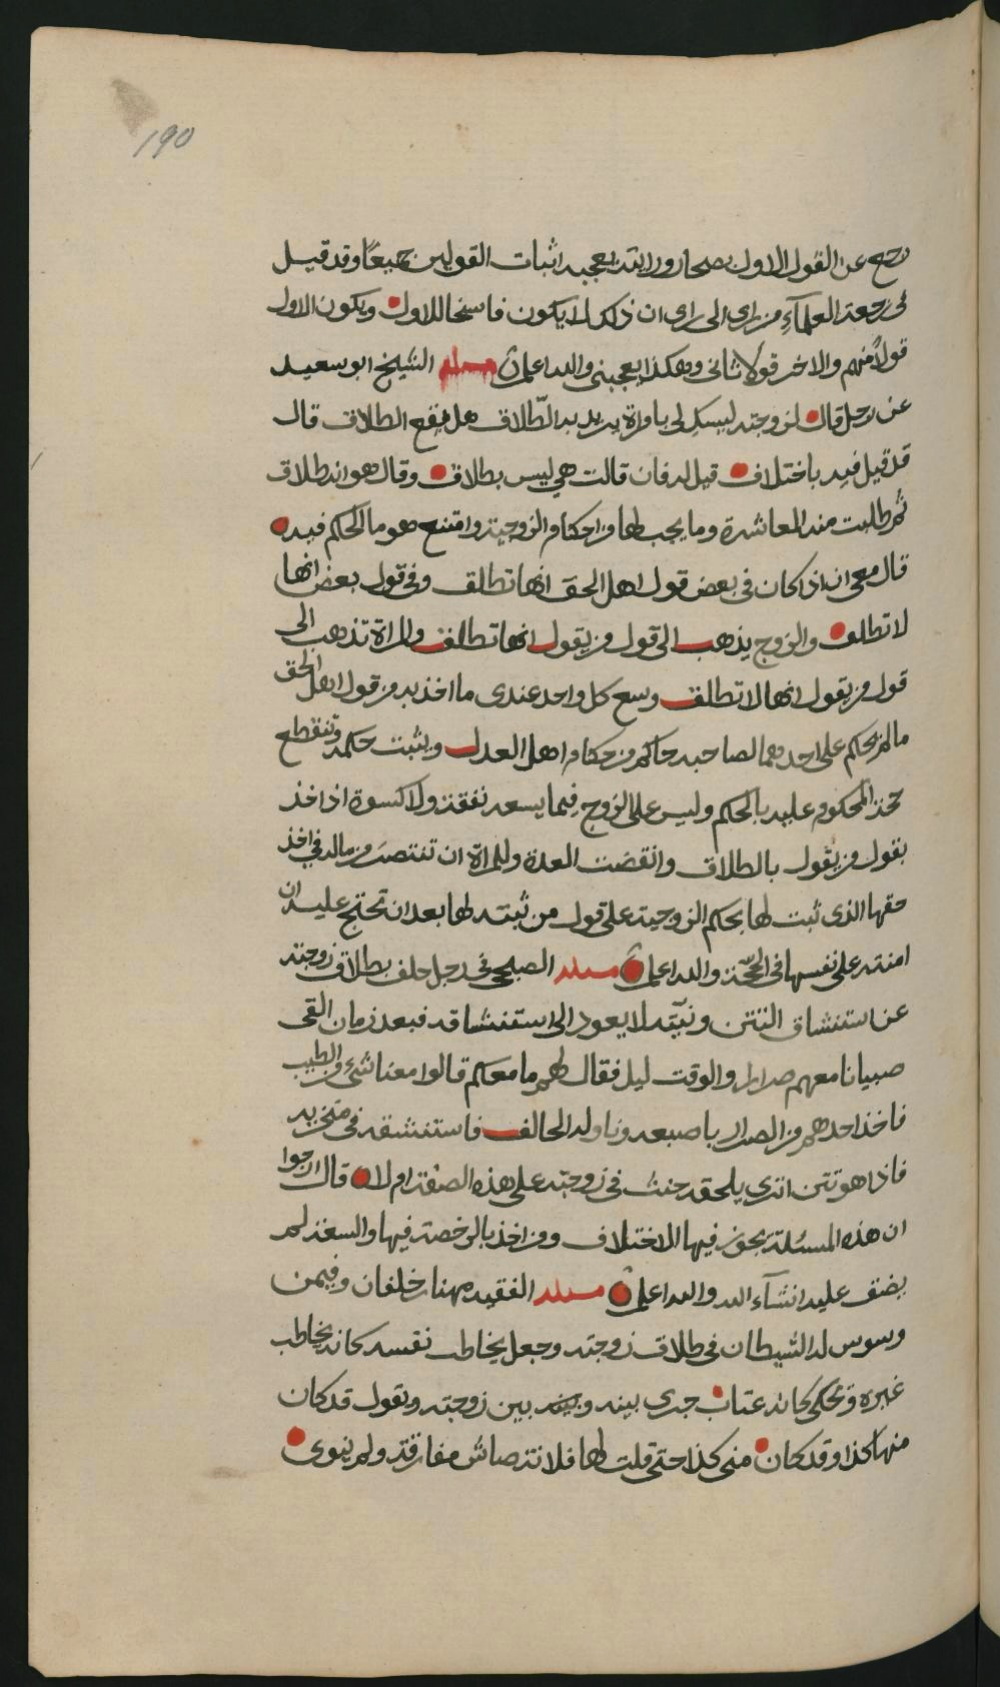 190
رجع عن القول الاول بصحار ورايته يعجبه اثبات القولين جميعًا وقد قيل
في رجعة العلمآء من راى الى راى ان ذلك لا يكون فاسخا للاول ويكون الاول
قولا منهم والاخر قولا ثانى وهكذا يعجبنى والله اعلم مسله الشيخ ابو سعيد
عن رجل قال لزوجته ليسك لى بامراة يريد به الطّلاق هل يقع الطلاق قال
قد قيل فيه باختلاف قيل له فان قالت هي ليس بطلاق وقال هو انه طلاق
ثم طلبت منه المعاشرة وما يجب لها من احكام الزوجية وامتنع هو ما الحكم فيه
قال معى انه اذا كان فى بعض قول اهل الحق انها تطلق وفى قول بعض انها
لا تطلق والزوج يذهب الى قول من يقول انها تطلق والمراة تذهب الى
قول من يقول انها لا تطلق وسع كل واحد عندى ما اخذ به من قول اهل الحق
ما لم يحكم على احدهما لصاحبه حاكم من حكام اهل العدل ويثبت حكمه وتنقطع
حجة المحكوم عليه بالحكم وليس على الزوج فيما يسعه نفقة ولا كسوة اذا اخذ
بقول من يقول بالطلاق وانقضت العدة وللمراة ان تنتصر من ماله في اخذ
حقها الذى ثبت لها بحكم الزوجية على قول من ثبته لها بعد ان تحتج عليه ان
امنته على نفسها فى الحجّة والله اعلم مسله الصبحى فى رجل حلف بطلاق زوجته
عن استنشاق التتن ونيّته لا يعود الى استنشاقه فبعد زمان القى
صبيانا معهم صرارا والوقت ليل فقال لهم ما معكم قالوا معنا شئ من الطيب
فاخذ احدهم من الصرار باصبعه وناوله الحالف فاستنشقه فى منخريه
فاذا هو تتن اترى يلحقه حنث فى زوجته على هذه الصفة ام لا قال ارجوا
ان هذه المسئلة يجوز فيها الاختلاف ومن اخذ بالرخصة فيها والسعة لم
يضق عليه انشآء الله والله اعلم مسله الفقيه مهنا بن خلفان وفيمن
وسوس له الشيطان فى طلاق زوجته وجعل يخاطب نفسه كانه يخاطب
غيره وتحكى كانه عتاب جرى بينه وبين زوجته ويقول قد كان
منها كذا وقد كان منى كذا حتى قلت لها فلانه صاش مفارقة ولم ينوى